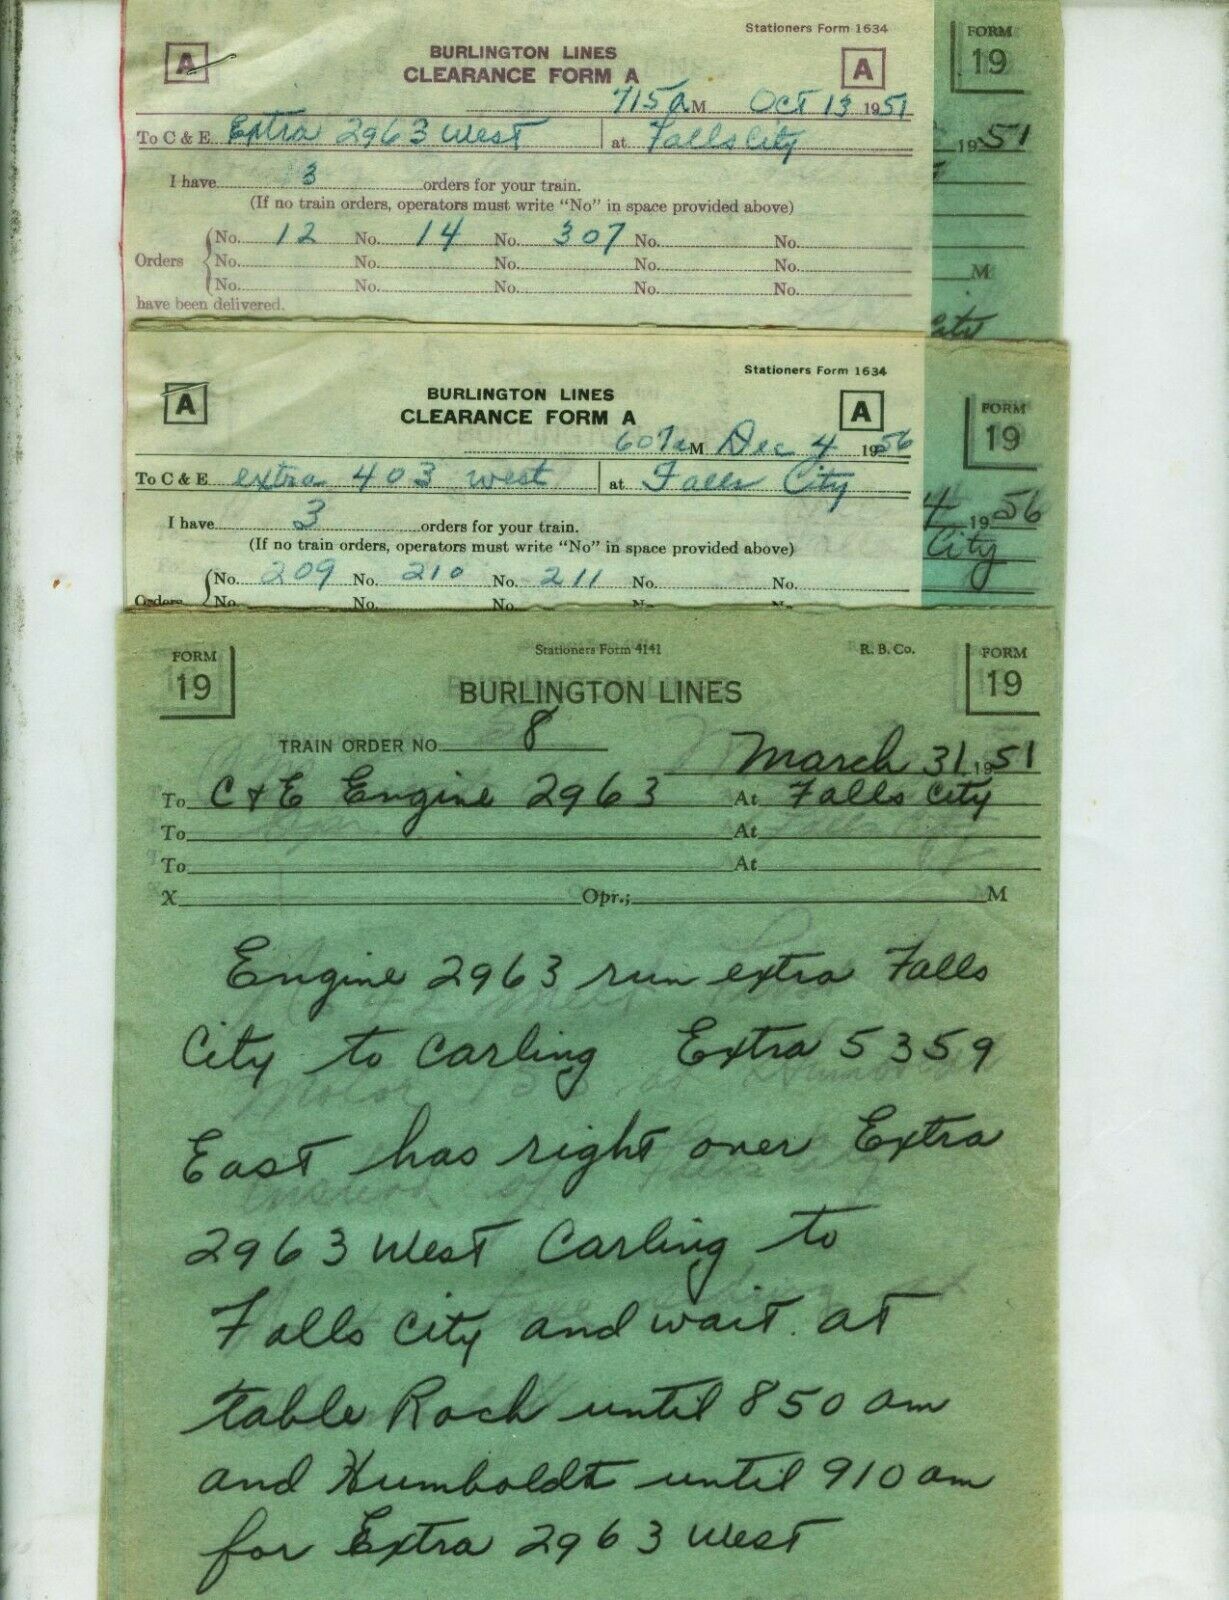 Stationers Form 1634
A BURLINGTON LINES A
CLEARANCE FORM A
715a M Oct 13 1951
To C & E Extra 2963 West at Falls City
I have 3 orders for your train.
(If no train orders, operators must write "No" in space provided above)
No. 12 No. 14 No. 307 No. No.
Orders No. No. No. No. No.
No. No. No. No. No.
have been delivered.
FORM
19
1951
M
City
Stationers Form 1634
A BURLINGTON LINES A
CLEARANCE FORM A
607a M Dec 4 1956
To C & E extra 403 west at Falls City
I have 3 orders for your train.
(If no train orders, operators must write "No" in space provided above)
No. 209 No. 210 No. 211 No. No.
Orders No. No. No. No. No.
FORM
19
4 1956
City
FORM
19
Stationers Form 4141 R. B. Co.
FORM
19
BURLINGTON LINES
TRAIN ORDER NO. 8
March 31 1951
To C & E Engine 2963 At Falls City
To At
To At
X Opr.; M
Engine 2963 run extra Falls
City to Carling Extra 5359
East has right over Extra
2963 West Carling to
Falls City and wait at
table Rock until 850 am
and Humboldt until 910 am
for Extra 2963 West